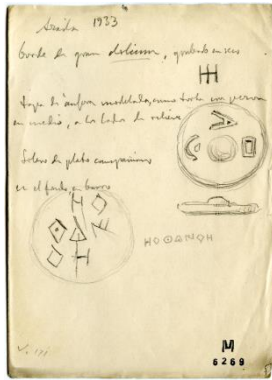 Azaila 1933
borde de gran dolium, grabado en seco
tapa de ánfora modelada, como torta con
en medio, a los lados de relieve
Solero de plato campaniense
en el fondo en barro
HOΘANOH
V. 171
M
6269